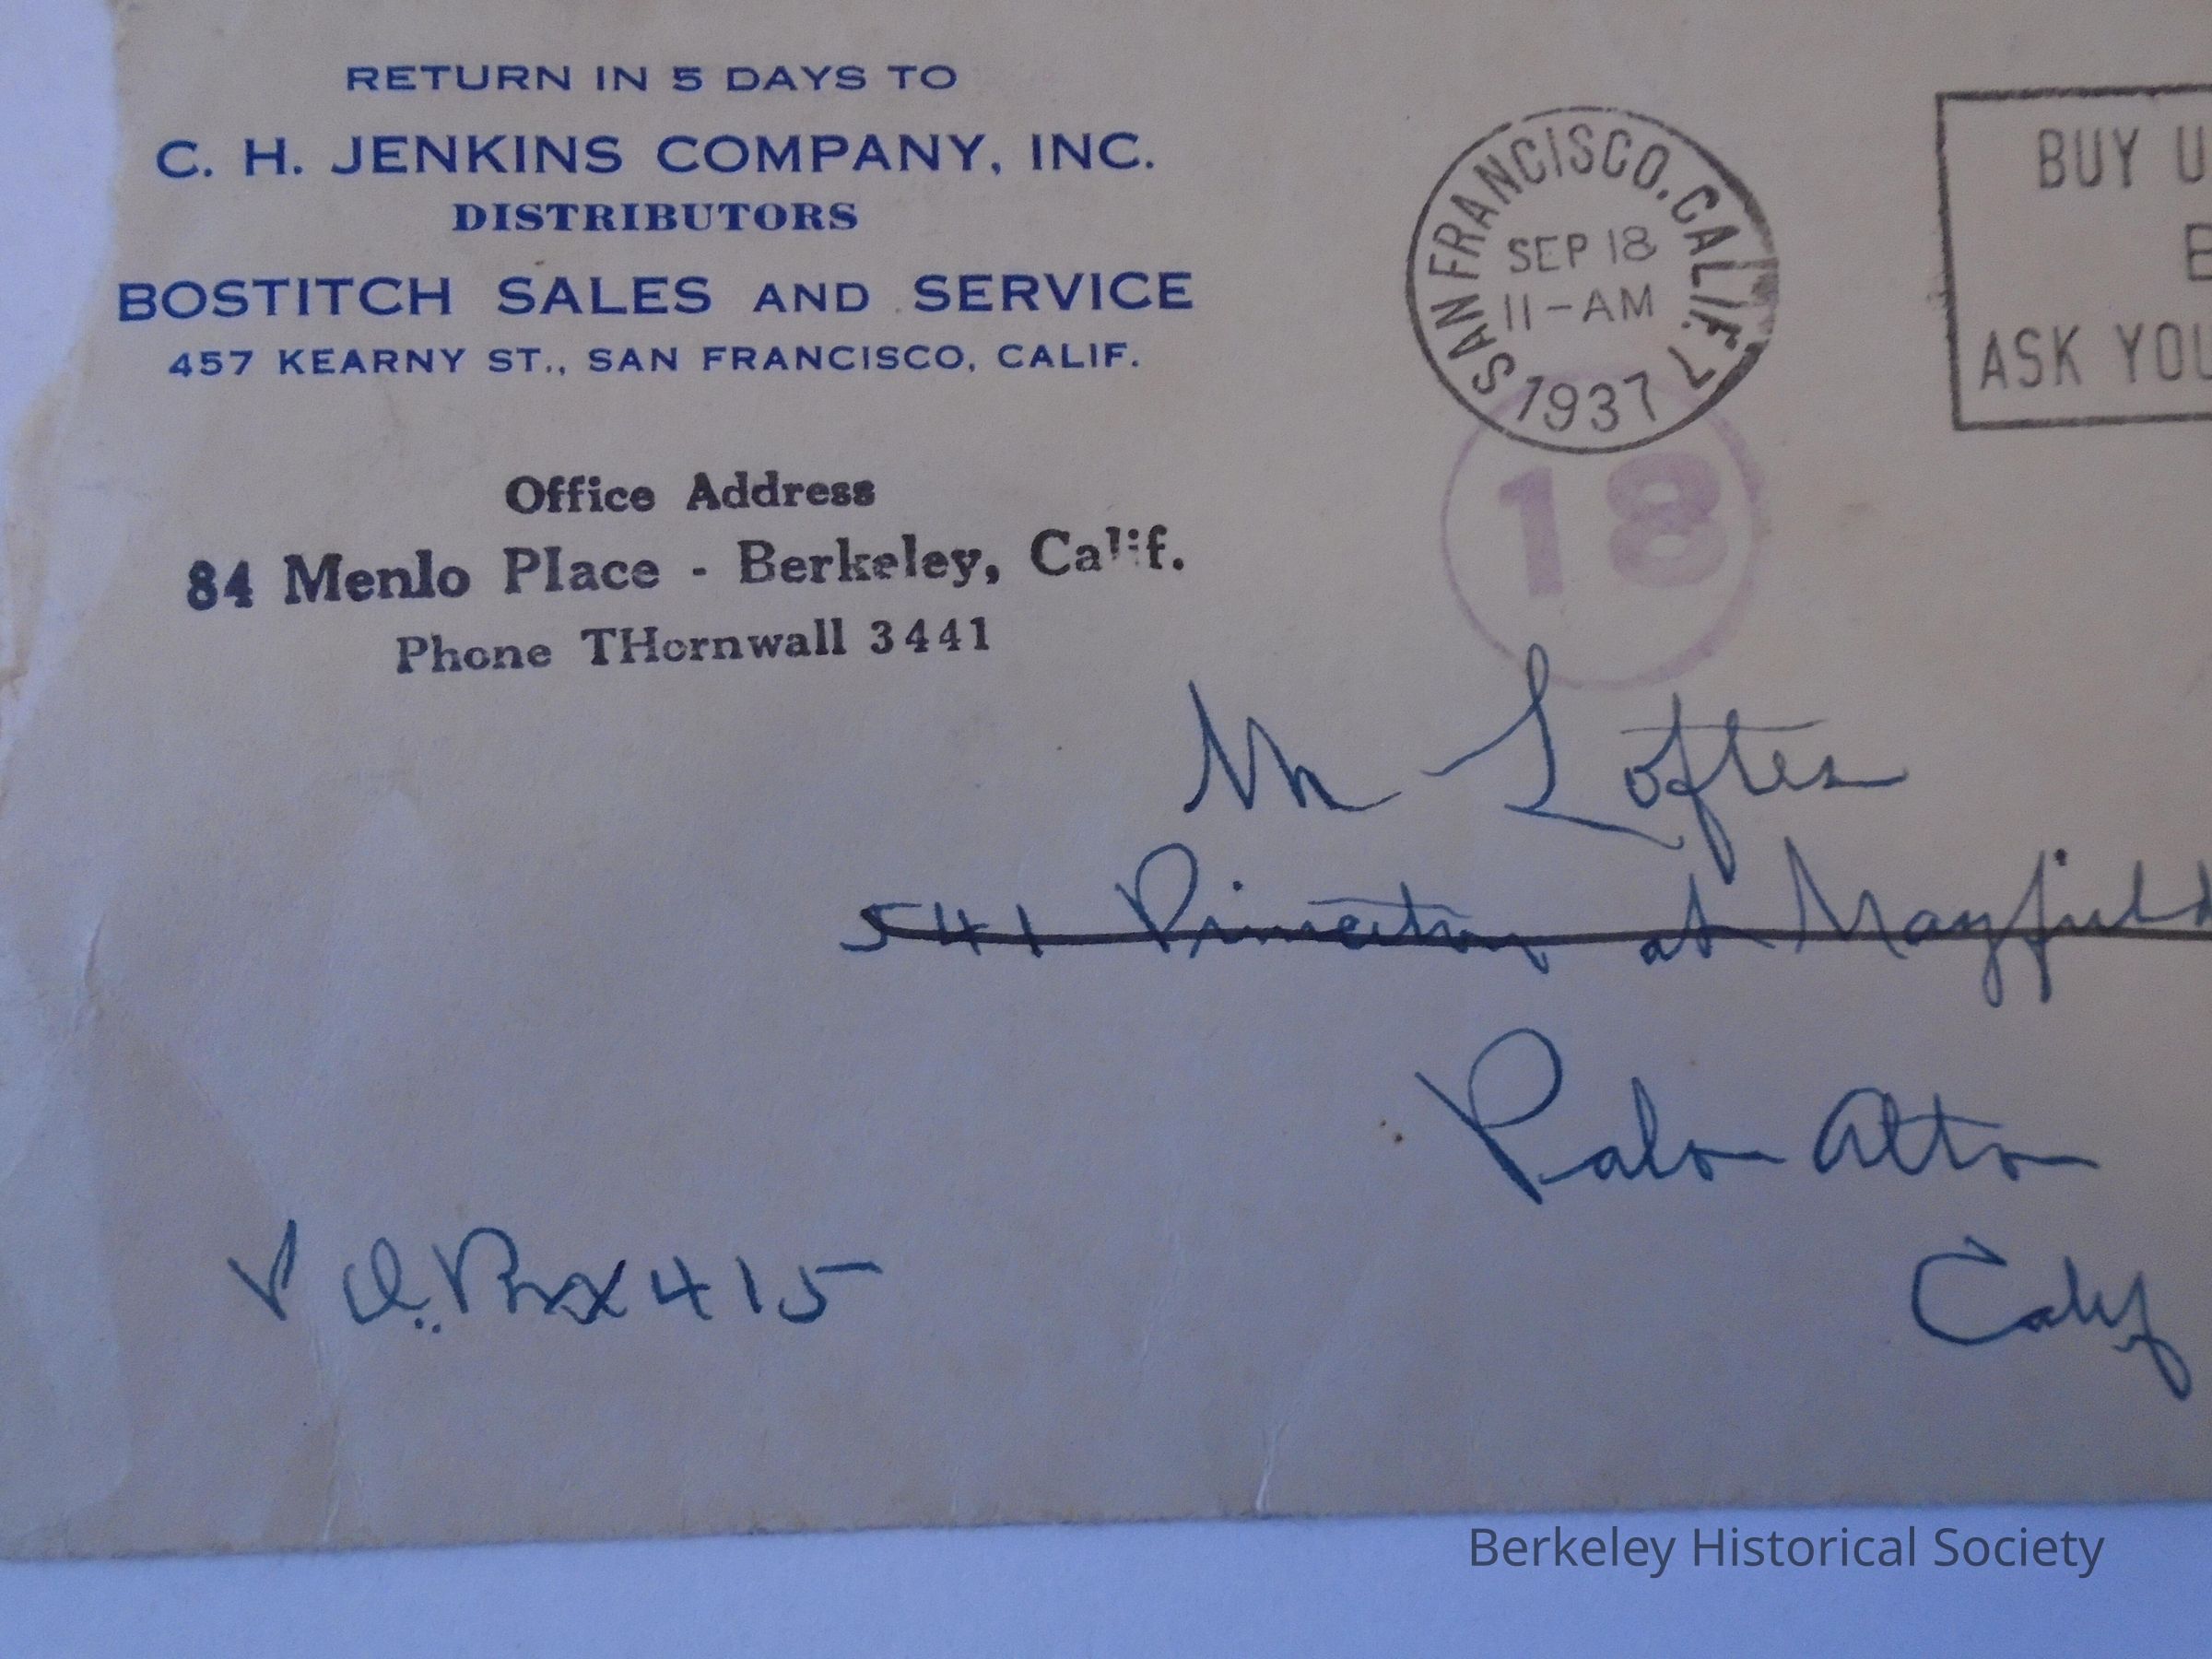 RETURN IN 5 DAYS TO
C. H. JENKINS COMPANY, INC.
DISTRIBUTORS
BOSTITCH SALES AND SERVICE
457 KEARNY ST., SAN FRANCISCO, CALIF.
Office Address
84 Menlo Place - Berkeley, Calif.
Phone THornwall 3441
SAN FRANCISCO, CALIF. 7
SEP 18
11-AM
1937
BUY U
ASK YOU
18
Mr Lofter
541 Princeton at Mayfield
Palo Alto
Calif
P.O. Box 415
Berkeley Historical Society